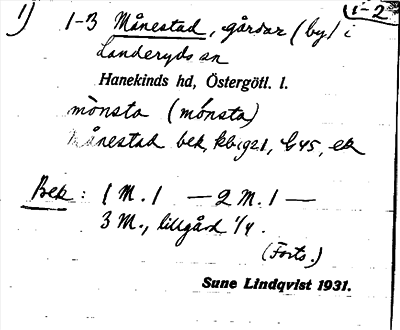 1) 1-3 Månestad, gårdar (by) i 1-2
Landeryds sn
Hanekinds hd, Östergötl. l.
mònsta (mónsta)
Månestad bek, kb 1921, G 45, ek
Bek : 1 M. 1 — 2 M. 1 —
3 M., lillgård 1/4.
(Forts.)
Sune Lindqvist 1931.